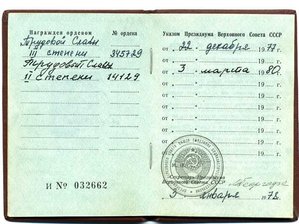 Награжден орденом
№ ордена
Трудовой Славы
III степени 345729
Трудовой Славы
II степени 14129
И № 032662
Указом Президиума Верховного Совета СССР
от 22 декабря 1977.
от 3 марта 1980.
от 19
от 19
от 19
от 19
от 19
Секретарь Президиума
Верховного Совета СССР
3 января 1978